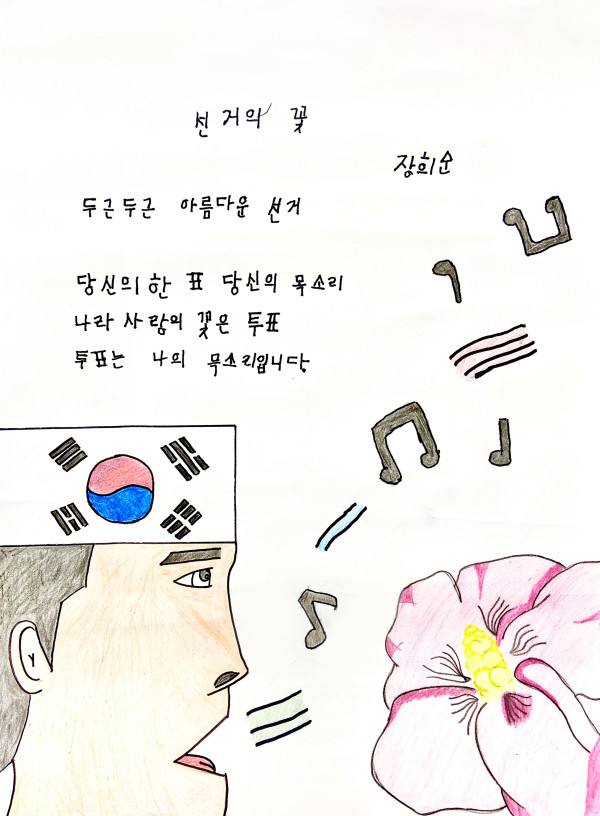 선거의 꽃
장희순
두근두근 아름다운 선거
당신의 한 표 당신의 목소리
나라 사람의 꽃은 투표
투표는 나의 목소리입니다.